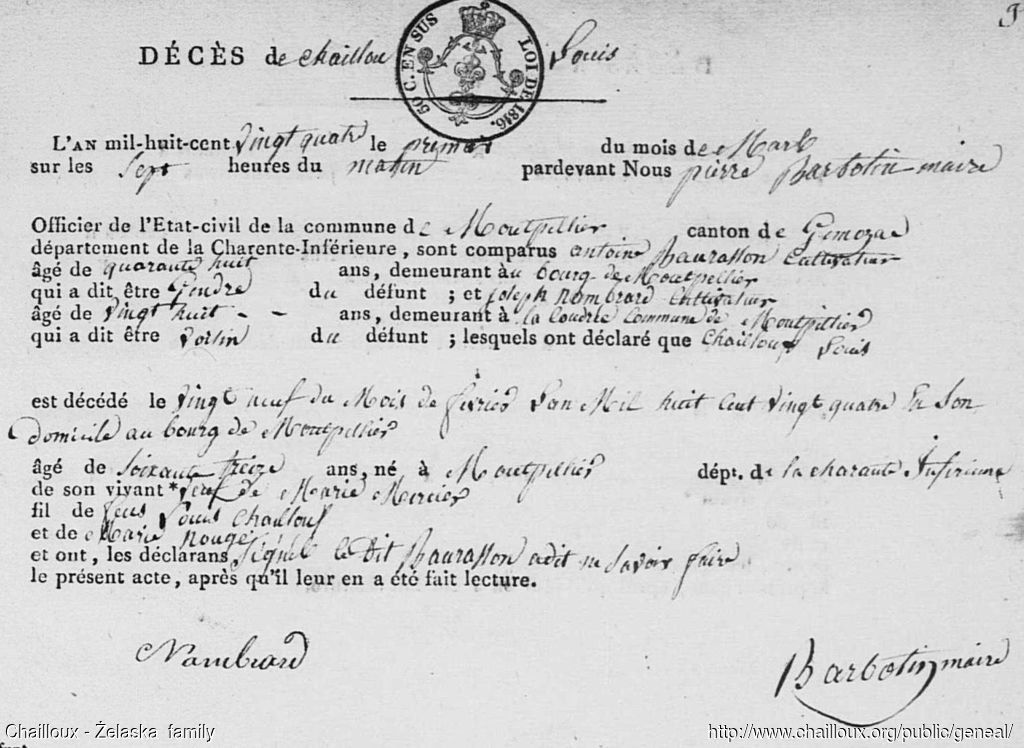 DÉCÈS de Chaillou Louis
50 C. EN SUS LOI DE 1816.
L'AN mil-huit-cent vingt quatre le premier du mois de Mars
sur les sept heures du matin pardevant Nous pierre Barbotin maire
Officier de l'Etat-civil de la commune de Montpellier canton de Gémozac
département de la Charente-Inférieure, sont comparus antoine Baurasson Cultivateur
âgé de quarante huit ans, demeurant àu bourg de Montpellier
qui a dit être Gendre du défunt ; et joseph Nombrard Cultivatier
âgé de vingt huit - - ans, demeurant à la Coudrée Commune de Montpellier
qui a dit être voisin du défunt ; lesquels ont déclaré que Chailloux Louis
est décédé le vingt neuf du Mois de fevrier Lan Mil huit Cent vingt quatre En Son
domicile au bourg de Montpellier
âgé de soixante treize ans, né à Montpellier dépt. de la charante Inferieure
de son vivant * veuf de Marie Mercier
fil de feus Louis Chailloux
et de Marie Rouge
et ont, les déclarans signé le Dit Baurasson adit ne Savoir faire
le présent acte, après qu'il leur en a été fait lecture.
Nambrard
Barbotin maire
Chailloux - Żelaska family
http://www.chailloux.org/public/geneal/